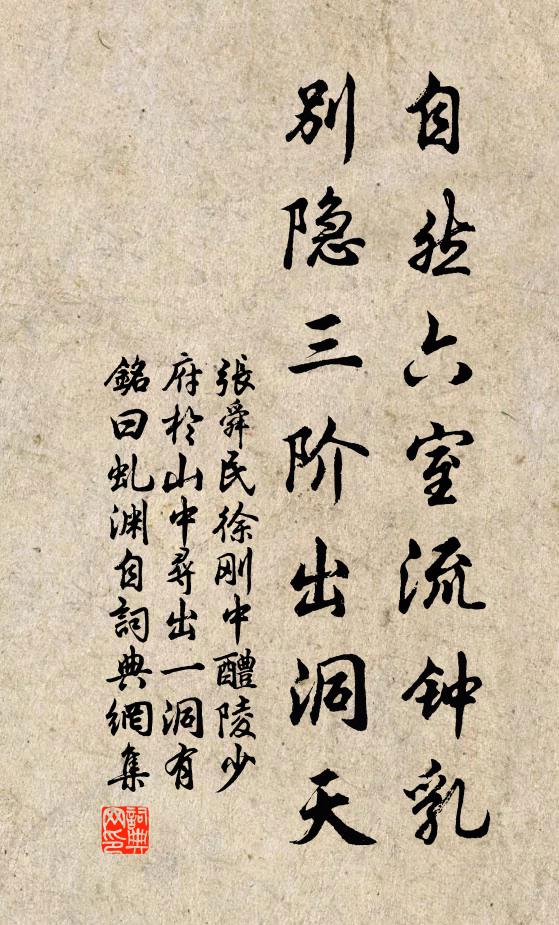 自然六室流钟乳
别隐三阶出洞天
張舜民徐刚中醴陵少
府於山中尋出一洞有
銘曰虬渊自詞典網集
詞典
网印